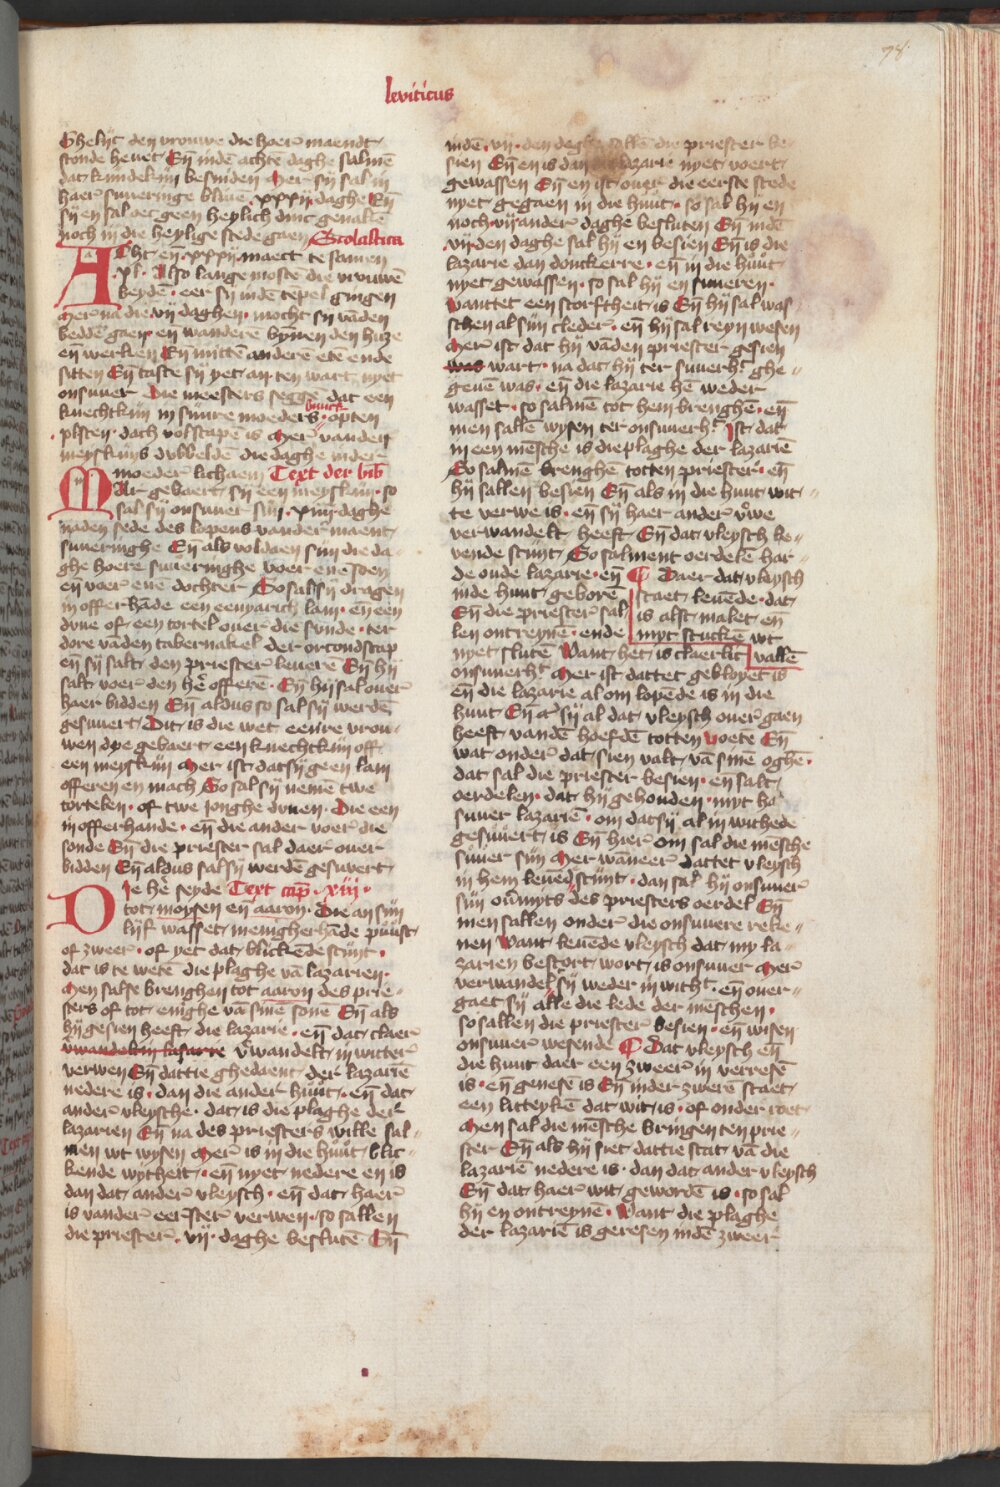 78
leviticus
Ghelijc den vrouwe die hoer maendt
stonde hevet Eñ indē achte daghe salmē
dat kindekijn besniden Mer sij sal in
haer suveringe blive .xxxij. daghe Eñ
sij en sal oec geen heylich dinc genakē
noch in die heylige stede gaen Scolastica
Acht eñ .xxxij. maect te samen
.xl. Also lange mostē die vrouwē
beydē . eer sij indē tēpel gingen
Mer na die .vij. daghen . mocht sij vādē
beddē gaen eñ wanderē bynnen den huze
en werken Eñ mittē andere etē ende
sitten Eñ taste sij yet an ten wart nyet
onsuver Die meesters seggē dat een
knechtkijn in sijnre moeders buuck opten
.xlsten. dach volscapē is Mer vanden
meyskijns dubbeldē die daghe inder
moeder lichaem Text der bib
Mar gebaert sij een meyskijn . so
sal sij onsuver sijn .xiiij. daghe
naden sede des lopens vander maent
suveringhe Eñ als voldaen sijn die da
ghe hoere suveringhe voer enē soen
eñ voer enē dochter So sal sij dragen
in offerhāde een eenyarich lam . en een
duve of een tortel over die sunde . ter
dore vādē tabernakel der orcondscap
eñ sij salt den priester leverē Eñ hij
salt voer den hē offerē . Eñ hij sal over
haer bidden Eñ aldus so sal sij werdē
gesuvert Dit is die wet eenre vrou
wen dye gebaert een knechtkijn off
een meyskijn Mer ist datsij geen lam
offeren en mach So sal sij nemē twe
tortelen . of twe jonghe duven . Die een
in offerhande . eñ die ander voer die
sonde Eñ die priester sal daer over
bidden Eñ aldus sal sij werdē gesuvert
Die hē seyde Text cap .xiij.
tot moysen eñ aaron . Die an sijn
lijf wasset menigherhāde puust
of zweer . of yet dat blickēde stijnt .
dat is te wetē die plaghe vā lazarien .
Men salse brenghen tot aaron des prie
sters of tot enighe vā sinē sonē Eñ als
hij gesien heeft die lazarie . eñ dat claer
v̄wandelt in witter
verwen Eñ dattie ghedaent der lazariē
nedere is . dan die ander huut . eñ dat
ander vleysche . dat is die plaghe der
lazarien Eñ na des priesters wille sal
men wt wysen Mer is in die huut blic
kende wytheit . eñ nyet nedere en is
dan dat ander vleysch . eñ dat haer
is vander eerster verwen . so sallen
die priester .vij. daghe beslutē Eñ
indē .vij. den daghe die priester be
sien Eñ en is dan lazarie nyet voert
gewassen Eñ en ist over die eerste stede
nyet gegaen in die huut . so sal hij en
noch .vij. ander daghe besluten Eñ indē
.vij. den daghe sal hij en besien Eñ is die
lazarie dan donckerre . eñ in die huut
nyet gewassen . so sal hij en suveren .
Wanttet een scorftheit is Eñ hij sal was
schen al sijn cleder . eñ hij sal reyn wesen
Mer ist dat hij vādē priester gesien
wart . na dat hij ter suverht ghe
gevē was . eñ die lazarie hē weder
wasset . so salmē tot hem brenghē . eñ
men sallē wysen ter onsuverht Ist dat
in een mēsche is die plaghe der lazariē
So salmē brenghē totten priester . eñ
hij sallen besien Eñ als in die huut wit
te verwe is . eñ sij haer ander v̄we
verwandelt heeft Eñ dat vleysch le
vende stijnt So salment oerdelē har
de oude lazarie . eñ
inde huut geborē
Eñ die priester sal
len ontreynē . ende
nyet slutē Want het is claerlic
Daer dat vleysch
staet levēde . dat
is alst malet eñ
myt stuckē wt
vallē
onsuverht Mer ist dattet geblopet is
eñ die lazarie al om lopēde is in die
huut Eñ sij al dat vleysch over gaen
heeft vandē hoefdē totten voete Eñ
wat onder dat sien valt vā sinē oghē .
dat sal die priester besien . en salt
oerdelen . dat hij gehouden myt ha
suver lazariē . om datsij al in withede
gesuvert is Eñ hier om sal die mēsche
suver sijn Mer wāneer dattet vleysch
in hem levēd stijnt . dan sal hij onsuver
sijn overmyts des priesters oerdel Eñ
men sallen onder die onsuvere reke
nen Want levēde vleysch dat my la
zarien bestort wort is onsuver Mer
verwandel sij weder in witht . eñ over
gaet sij alle die lede der mēschen .
so sallen die priester besien . eñ wisen
onsuver wesende Dat vleysch eñ
die huut daer een zweer in verresē
is . eñ genesē is Eñ inder zwerē staet
een litteykē dat wit is . of onder roet
Men sal die mēsche bringen ten prie
ster Eñ als hij siet dattie stat vā die
lazariē nedere is . dan dat ander vleysch
Eñ dat haer wit gewordē is . so sal
hij en ontreynē . Want die plaghe
der lazariē is geresen indē zweer